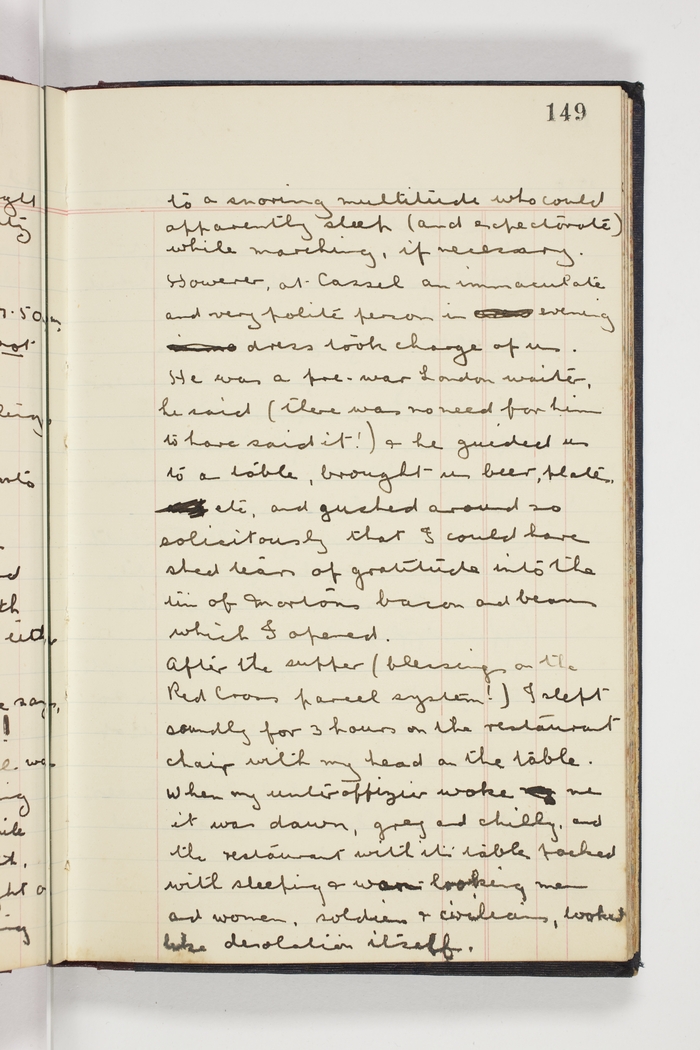 149
to a snoring multitude who could
apparently sleep (and expectorate)
while marching, if necessary.
However, at Cassel an immaculate
and very polite person in evening
dress took charge of us.
He was a pre-war London waiter,
he said (there was no need for him
to have said it!) & he guided us
to a table, brought us beer, plates,
etc, and gushed around so
solicitously that I could have
shed tears of gratitude into the
tin of Mortons bacon and beans
which I opened.
After the supper (blessings on the
Red Cross parcel system!) I slept
soundly for 3 hours on the restaurant
chair with my head on the table.
When my unteroffizier woke me
it was dawn, grey and chilly, and
the restaurant with its tables packed
with sleeping & wan looking men
and women, soldiers & civilians, looked
like desolation itself.